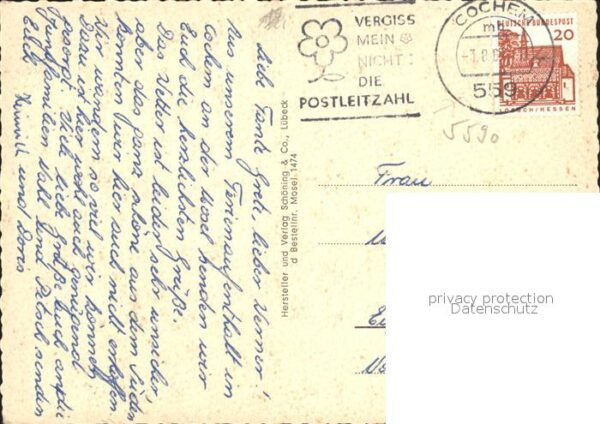 VERGISS
MEIN
NICHT
DIE
POSTLEITZAHL
COCHEM
559
DEUTSCHE BUNDESPOST
20
LORSCH/HESSEN
5590
Liebe Tante Grete, lieber Werner!
Aus unserem Ferienaufenthalt in
Cochem an der Mosel senden wir
Euch die herzlichsten Grüße.
Das Wetter ist leider sehr unsicher,
aber das ganz schöne aus dem Süden
konnten wir hier auch nicht erhoffen.
Wir wandern so viel wir können,
Dazu ist hier wohl auch genügend
gesorgt. Viele liebe Grüße Euch
Familien
senden
Euch
Heinrich und Doris
Hersteller und Verlag Schöning & Co., Lübeck
d Bestellnr. Mosel 1474
Frau
privacy protection
Datenschutz